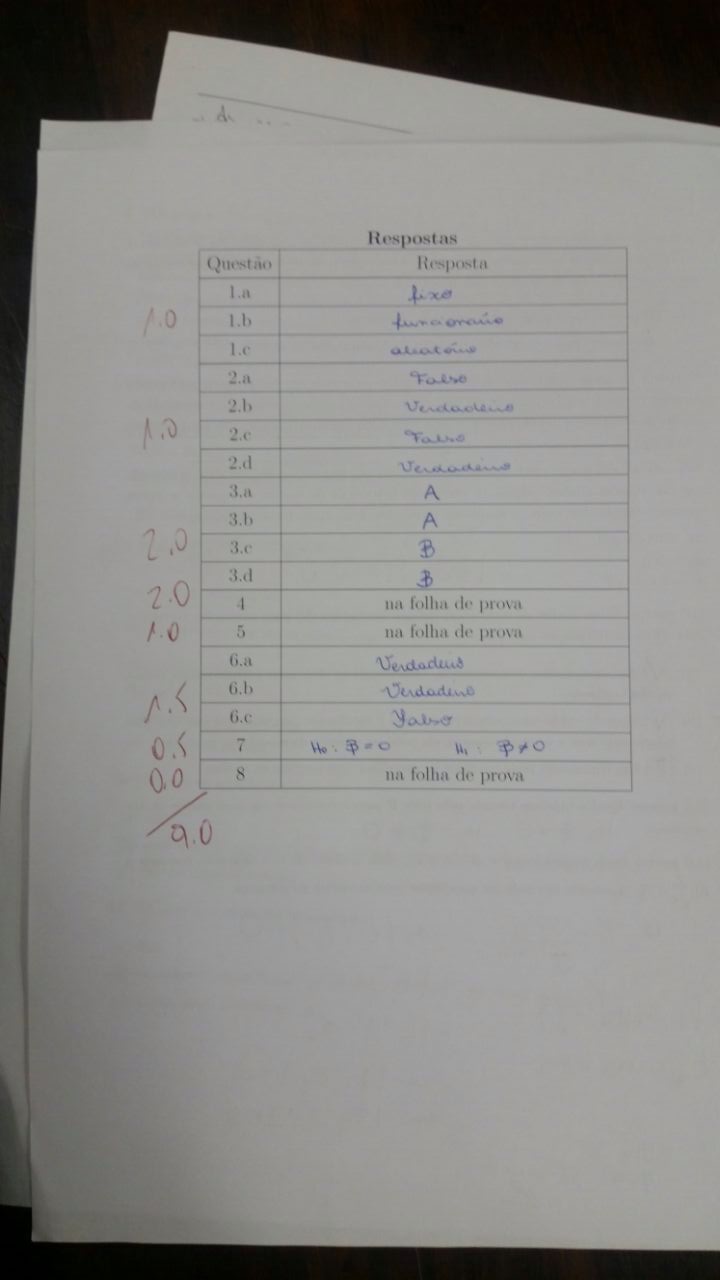 Respostas
Questão Resposta
1.a fixo
1.0 1.b funcionário
1.c aleatório
2.a Falso
2.b Verdadeiro
1.0 2.c Falso
2.d Verdadeiro
3.a A
3.b A
2.0 3.c B
3.d B
2.0 4 na folha de prova
1.0 5 na folha de prova
6.a Verdadeiro
6.b Verdadeiro
1.5 6.c Falso
0.5 7 H₀: β = 0 H₁: β ≠ 0
0.0 8 na folha de prova
9.0